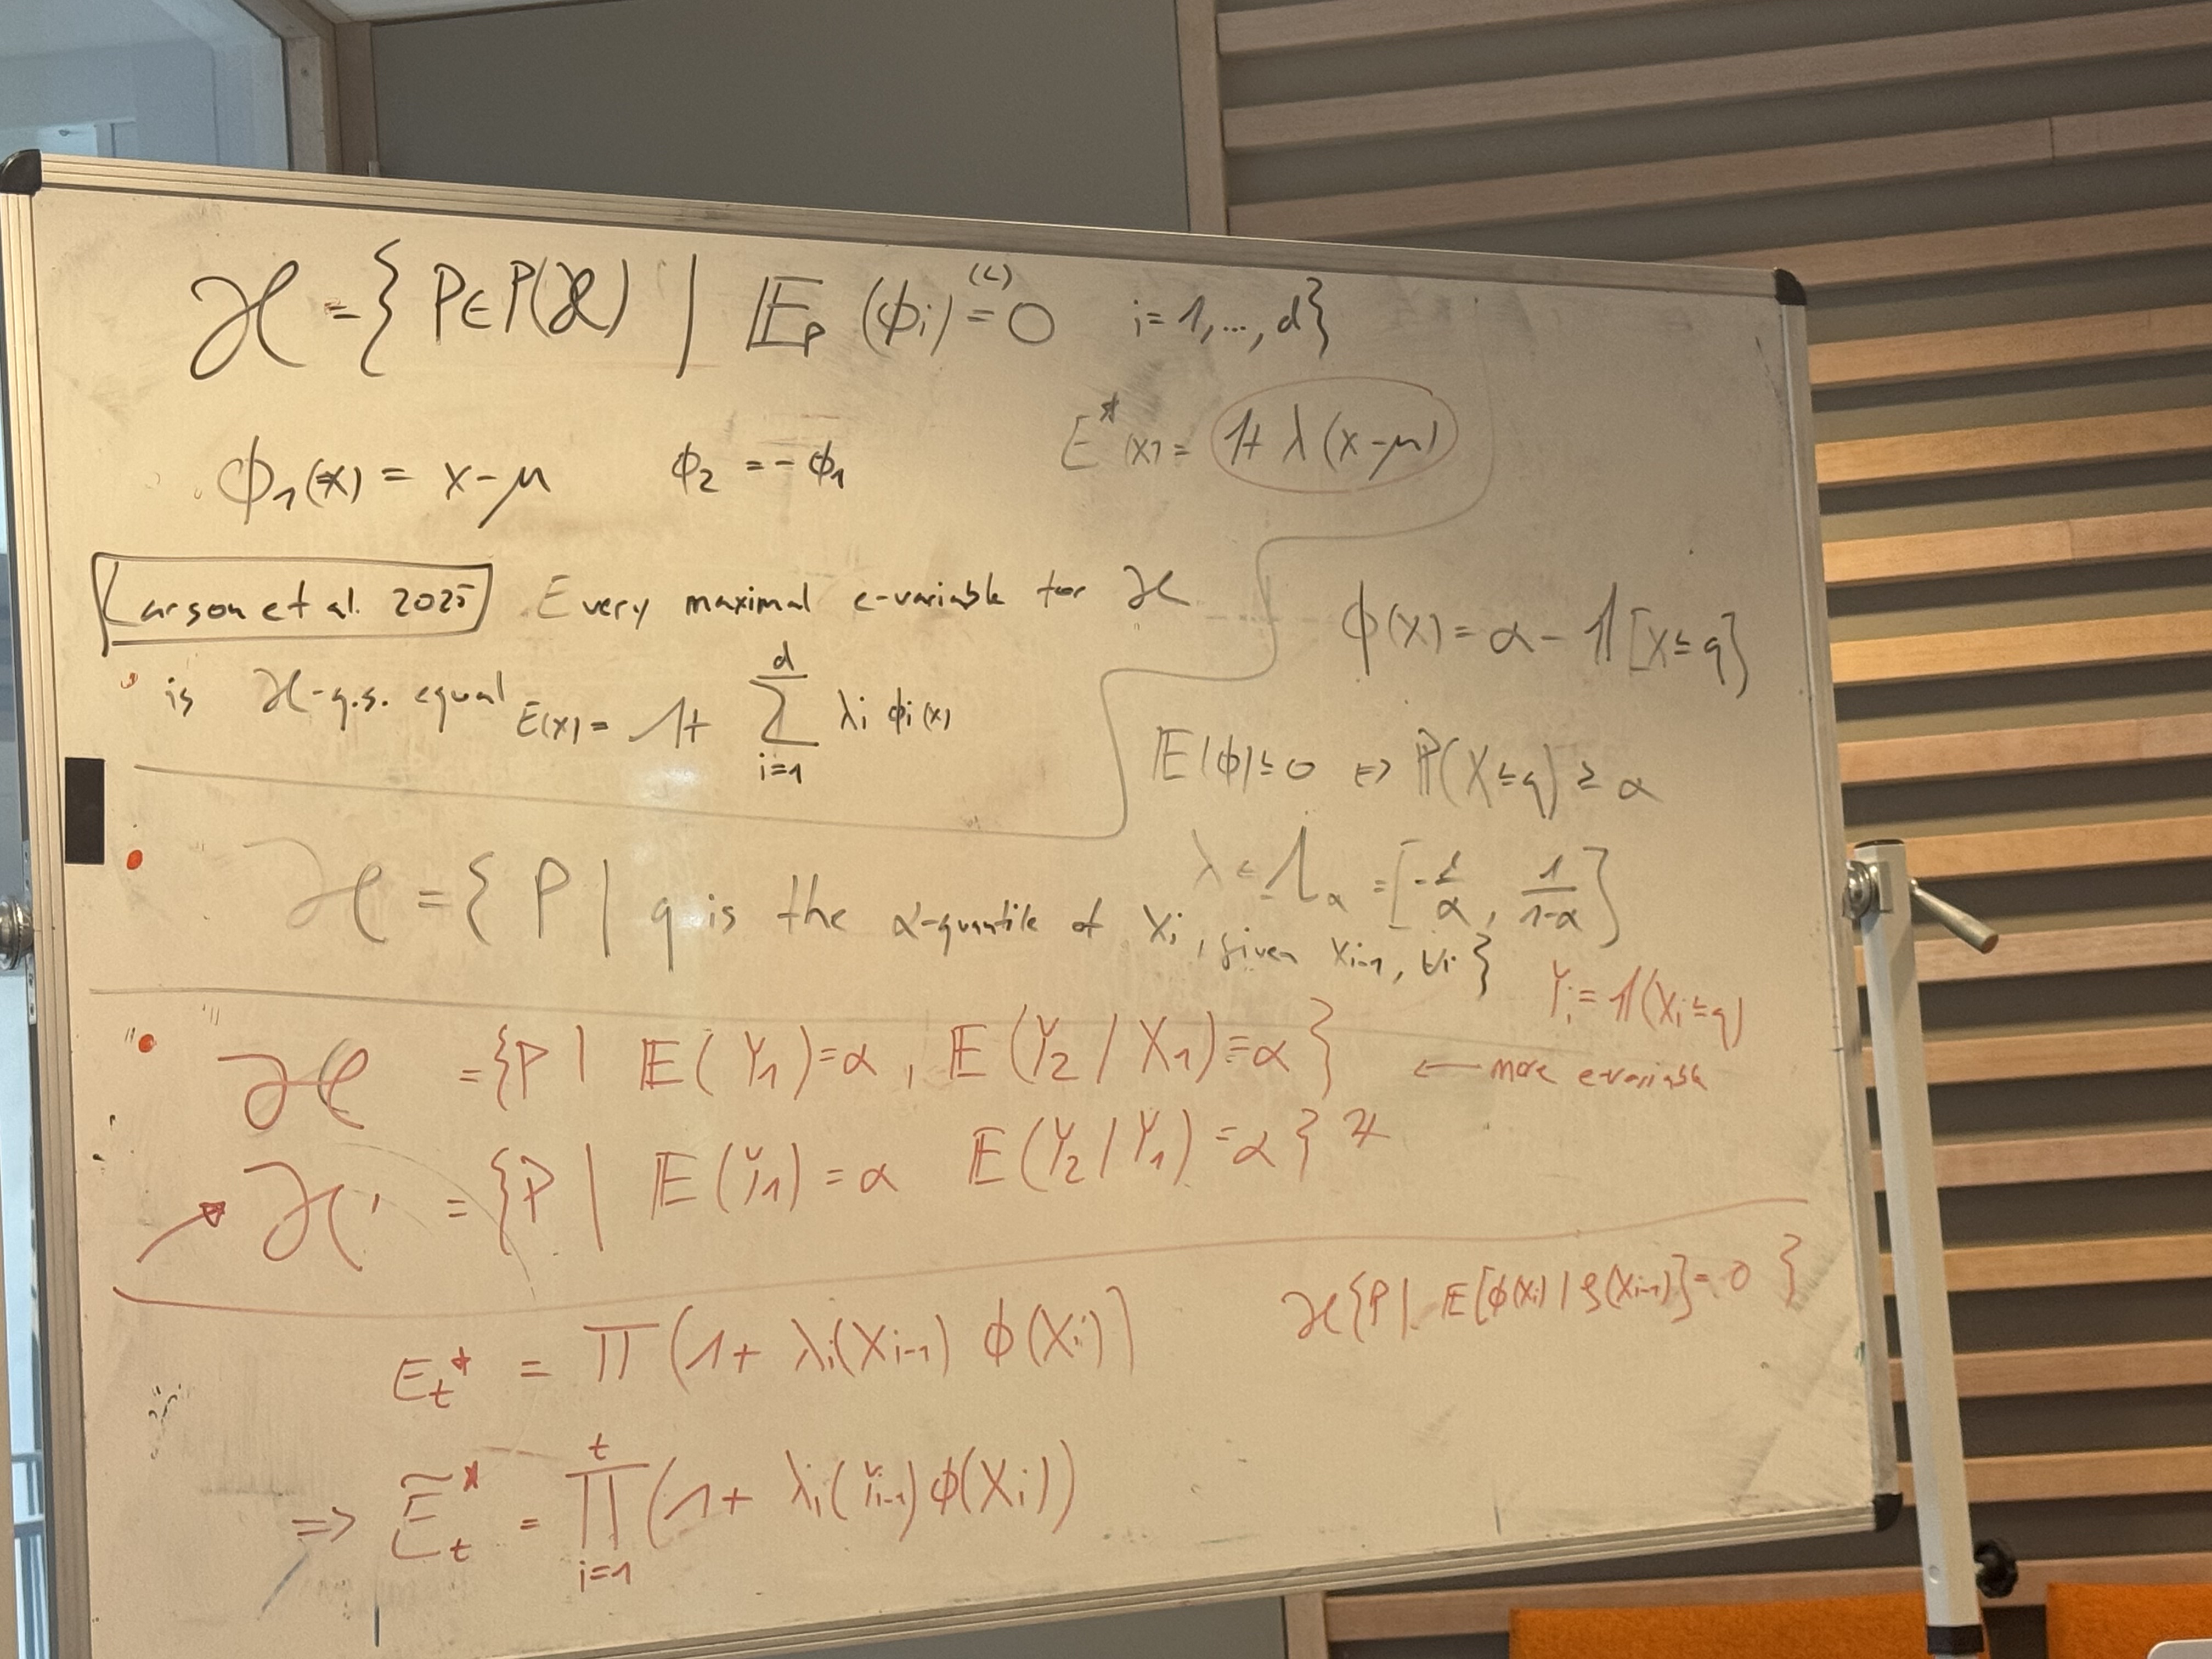 ℋ = { P ∈ P(𝒳) | 𝔼_P (ϕ_i) (≤) = 0 i = 1, ..., d }
E*(x) = 1 + λ(x-μ)
ϕ_1(x) = x-μ ϕ_2 = -ϕ_1
Larson et al. 2025 Every maximal e-variable for ℋ
is ℋ-q.s. equal E(x) = 1 + ∑_{i=1}^{d} λ_i ϕ_i(x)
ϕ(x) = α - 𝟙[x ≤ q]
𝔼(ϕ) ≤ 0 ⇔ ℙ(X ≤ q) ≥ α
λ ∈ Λ_α = [-1/α, 1/(1-α)]
ℋ = { P | q is the α-quantile of X_i, given X_{i-1}, ∀i }
Y_i = 𝟙(X_i ≤ q)
" ℋ " = { P | 𝔼(Y_1) = α, 𝔼(Y_2 | X_1) = α }
← more e-variable
ℋ' = { P | 𝔼(Y_1) = α 𝔼(Y_2 | Y_1) = α }
ℋ { P | 𝔼[ϕ(X_i) | g(X_{i-1})] = 0 }
E_t* = ∏ (1 + λ_i(X_{i-1}) ϕ(X_i))
⇒ Ẽ_t* = ∏_{i=1}^{t} (1 + λ_i(Y_{i-1}) ϕ(X_i))